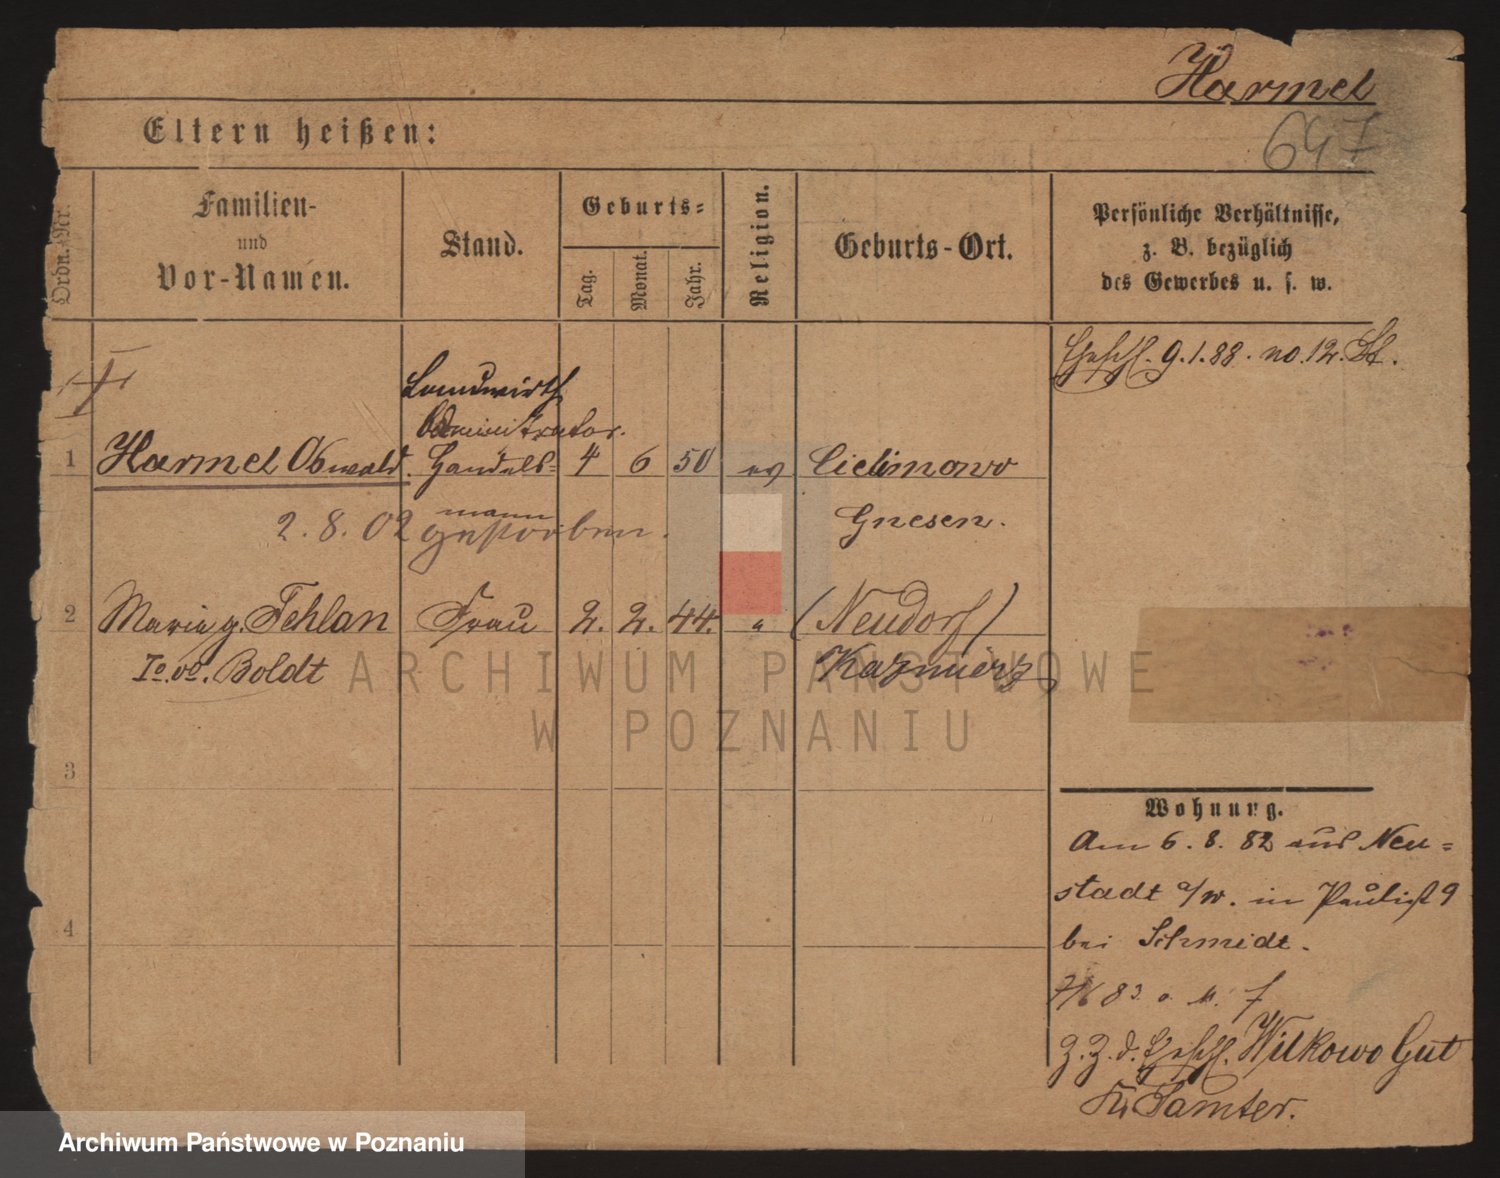 Harmel
647
Eltern heißen:
Ordn.-Nr.
Familien-
und
Vor-Namen.
Stand.
Geburts-
Tag.
Monat.
Jahr.
Religion.
Geburts-Ort.
Persönliche Verhältnisse,
z. B. bezüglich
des Gewerbes u. s. w.
Eheschl. 9.1.88. no. 12. St.
Landwirth
Administrator.
1 Harmel Oswald. Handels= 4 6 50 ev Cielimowo
mann
2.8.02 gestorben.
Gnesen.
2 Maria g. Fehlan Frau 2. 2. 44. " (Neudorf)
Io. vo. Boldt
Kazmierz
ARCHIWUM PAŃSTWOWE
W POZNANIU
3
Wohnung.
Am 6. 8. 82 aus Neu=
stadt a/W. in Paulist 9
bei Schmidt.
4
83
Z. Z. d. Eheschl. Wilkowo Gut
Kr Samter.
Archiwum Państwowe w Poznaniu